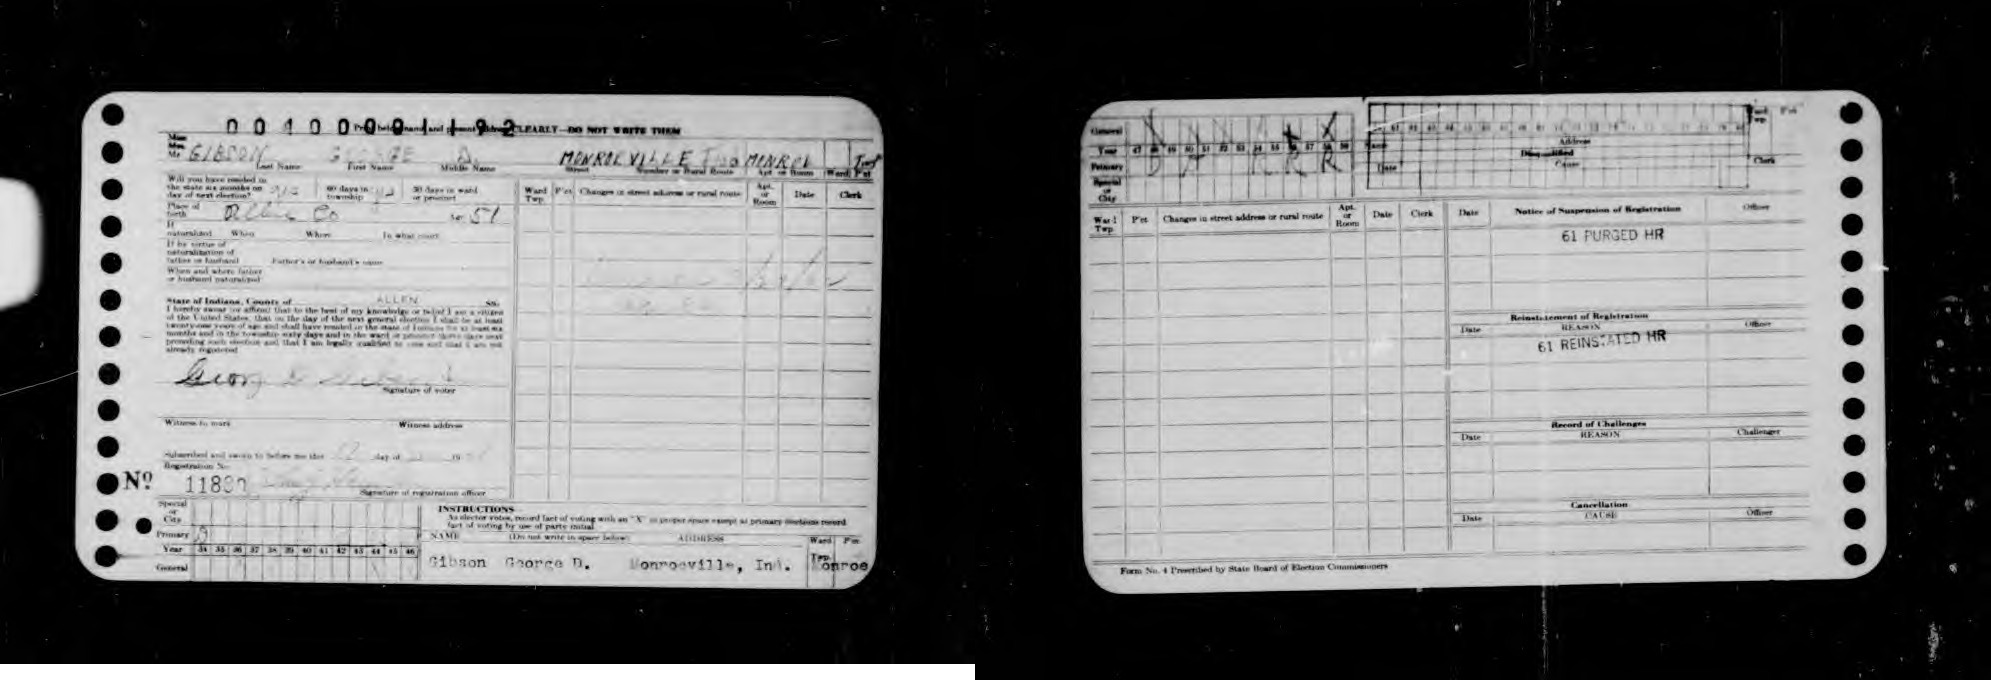 00100001192
Print below name and present address CLEARLY—DO NOT WRITE THEM
Miss
Mrs.
Mr. GIBSON GEORGE D. MONROEVILLE IND MONROE Twp
Last Name First Name Middle Name Street Number or Rural Route Apt or Room Ward P'ct
Will you have resided in
the state six months on
day of next election? yes 60 days in
township yes 30 days in ward
or precinct
Place of
birth Allen Co Age 51
If
naturalized When Where In what court
If by virtue of
naturalization of
father or husband Father's or husband's name
When and where father
or husband naturalized
State of Indiana, County of ALLEN ss.
I hereby swear (or affirm) that to the best of my knowledge or belief I am a citizen
of the United States, that on the day of the next general election I shall be at least
twenty-one years of age and shall have resided in the state of Indiana for at least six
months and in the township sixty days and in the ward or precinct thirty days next
preceding such election and that I am legally qualified to vote and that I am not
already registered
George D
Signature of voter
Witness to mark Witness address
Subscribed and sworn to before me this day of 19
Registration No.
No 1188
Signature of registration officer
Ward
Twp. P'ct Changes in street address or rural route Apt.
or
Room Date Clerk
Special
or
City
Primary
Year 34 35 36 37 38 39 40 41 42 43 44 45 46
General
INSTRUCTIONS
As elector votes, record fact of voting with an "X" in proper space except at primary elections record
fact of voting by use of party initial
NAME (Do not write in space below) ADDRESS Ward
Twp. P'ct
Gibson George D. Monroeville, Ind. Monroe
General
Year 47 48 49 50 51 52 53 54 55 56 57 58 59
Primary D R R R
Special
or
City
Ward
Twp. P'ct
Address
Disqualified
Date Cause Clerk
Ward
Twp. P'ct Changes in street address or rural route Apt.
or
Room Date Clerk
Date Notice of Suspension of Registration Officer
61 PURGED HR
Reinstatement of Registration
Date REASON Officer
61 REINSTATED HR
Record of Challenges
Date REASON Challenger
Cancellation
Date CAUSE Officer
Form No. 4 Prescribed by State Board of Election Commissioners